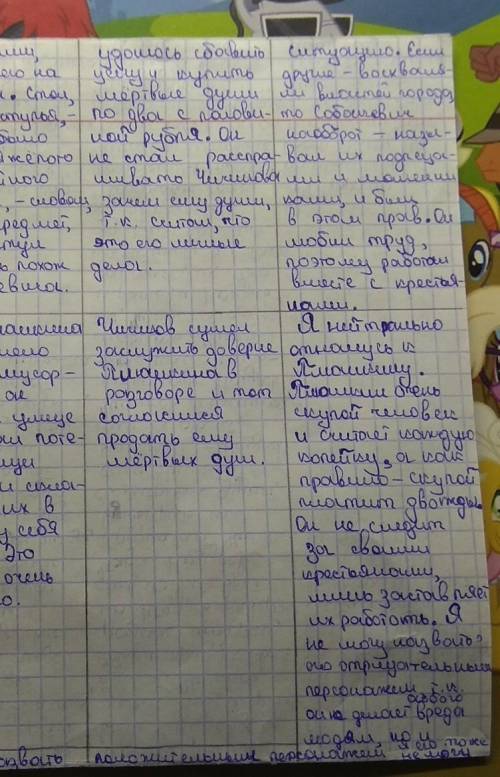 удалось сбавить
цену и купить
мёртвые души
по два с полови-
ной рубля. Он
не стал расспра-
шивать Чичикова
зачем ему души,
т.к. считал, что
это его личные
дела.
ситуацию. Если
другие – восхваля-
ли властей города,
то Собакевич
наоборот – назы-
вал их подлеца-
ми и мошенни
ками, и был
в этом прав. Он
любил труд,
поэтому работал
вместе с крестья-
нами.
на
стол,
было
тяжёлого
, – словом,
предмет,
похож
Чичиков сумел
заслужить доверие
Плюшкина в
разговоре и тот
согласился
продать ему
мёртвых душ.
Я нейтрально
отношусь к
Плюшкину.
Плюшкин очень
скупой человек
и считает каждую
копейку, а как
правило – скупой
платит дважды.
Он не следит
за своими
крестьянами,
лишь заставляет
их работать. Я
не могу назвать
его отрицательным
персонажем, т.к.
он не делает особого вреда
людям, но и
мусор –
он
улице
поте-
их в
у себя
Это
очень
назвать положительным персонажем я его тоже не могу